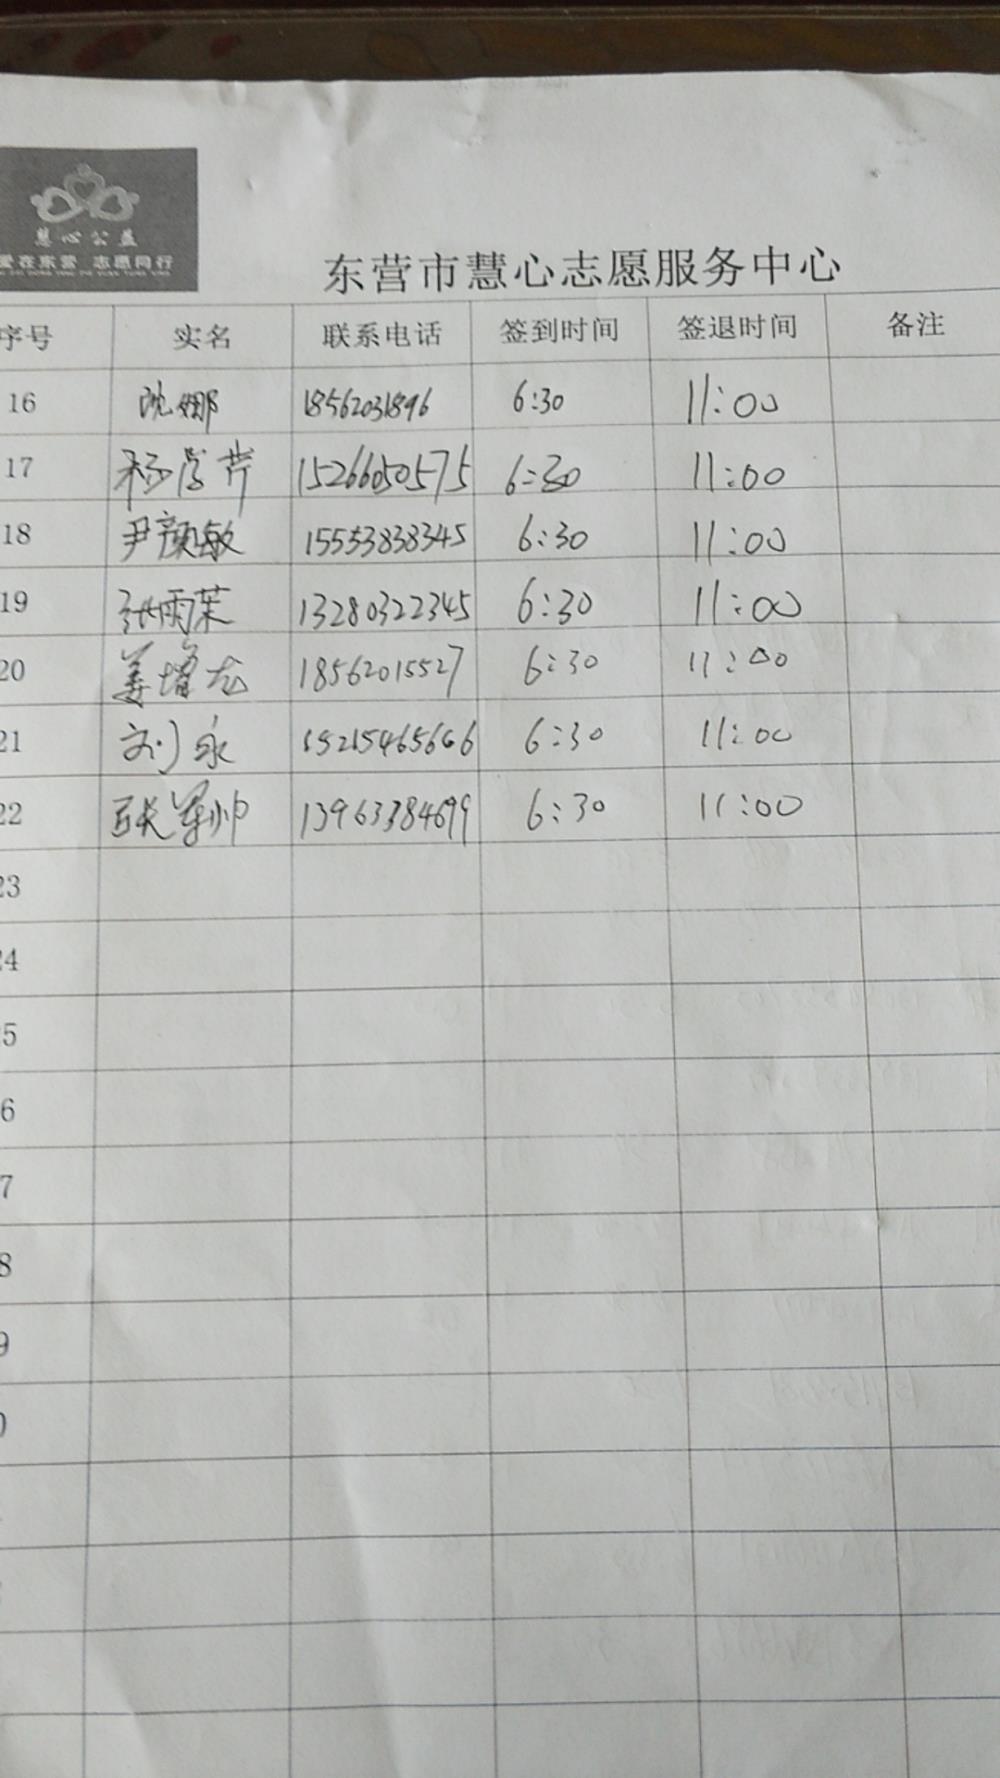 慧心公益
爱在东营 志愿同行
东营市慧心志愿服务中心
序号 实名 联系电话 签到时间 签退时间 备注
16 沈娜 18562031896 6:30 11:00
17 杨学芹 15266050575 6:30 11:00
18 尹颜敏 15553838345 6:30 11:00
19 张雨茉 13280322345 6:30 11:00
20 姜增龙 18562015527 6:30 11:00
21 刘永 15215465666 6:30 11:00
22 张军帅 13963384699 6:30 11:00
23
24
5
6
7
8
9
0